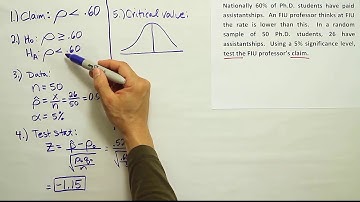 1.) Claim: p < .60
2.) H₀: p ≥ .60
Hₐ: p < .60
3.) Data:
n = 50
p̂ = x/n = 26/50 = 0.5
α = 5%
4.) Test stat:
z = p̂ - p₀ / √(p₀q₀/n) = .52
= -1.15
5.) Critical value:
Nationally 60% of Ph.D. students have paid
assistantships. An FIU professor thinks at FIU
the rate is lower than this. In a random
sample of 50 Ph.D. students, 26 have
assistantships. Using a 5% significance level,
test the FIU professor's claim.